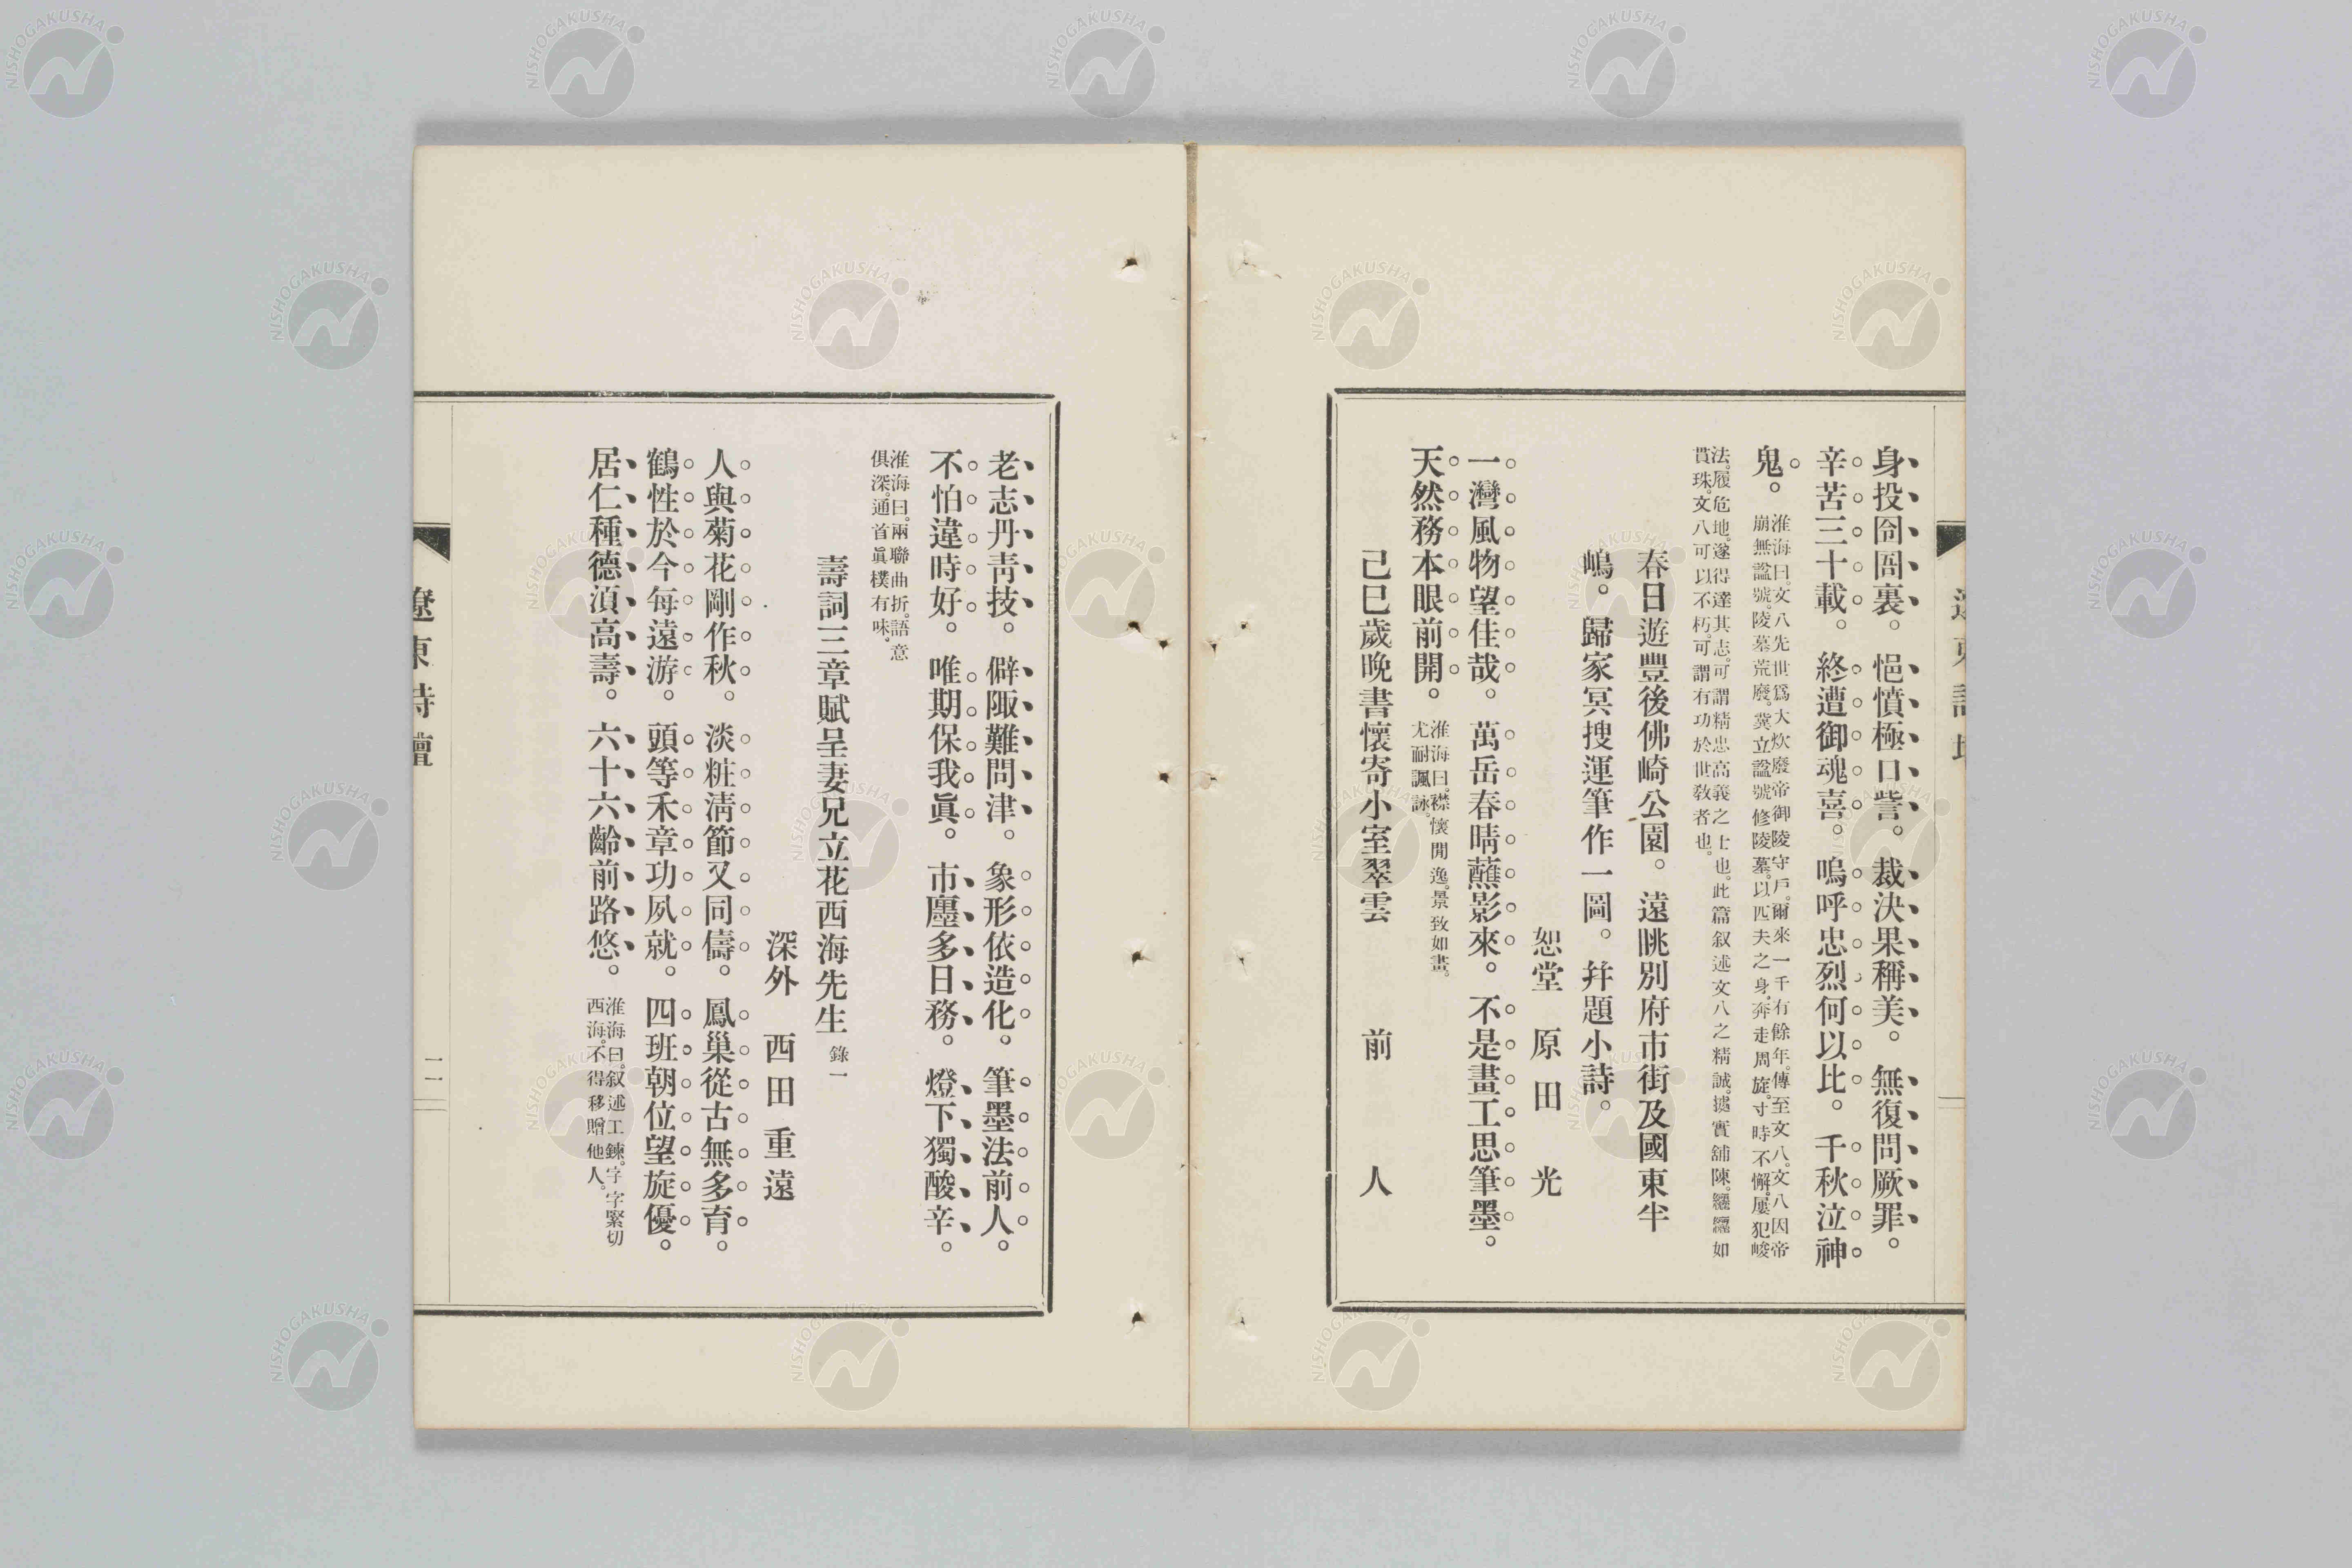 身投囹圄裏。悒憤極口訾。裁決果稱美。無復問厥罪。
辛苦三十載。終遭御魂喜。嗚呼忠烈何以比。千秋泣神
鬼。
淮海曰。文八先世爲大炊廢帝御陵守戶。爾來一千有餘年。傳至文八。文八因帝
崩無諡號。陵墓荒廢。冀立諡號修陵墓。以匹夫之身。奔走周旋。寸時不懈。屢犯峻
法。履危地。遂得達其志。可謂精忠高義之士也。此篇叙述文八之精誠。據實舖陳。纚纚如
貫珠。文八可以不朽。可謂有功於世敎者也。
春日遊豐後佛崎公園。遠眺別府市街及國東半
嶋。歸家冥搜運筆作一圖。幷題小詩。
恕堂 原田 光
一灣風物望佳哉。萬岳春晴蘸影來。不是畫工思筆墨。
天然務本眼前開。
淮海曰。襟懷閒逸。景致如畫。
尤耐諷詠。
己巳歲晚書懷寄小室翠雲
前人
遼東詩壇
老志丹靑技。僻陬難問津。象形依造化。筆墨法前人。
不怕違時好。唯期保我眞。市廛多日務。燈下獨酸辛。
淮海曰。兩聯曲折。語意
俱深。通首眞樸有味。
壽詞三章賦呈妻兄立花西海先生 錄一
深外 西田重遠
人與菊花剛作秋。淡粧淸節又同儔。鳳巢從古無多育。
鶴性於今每遠游。頭等禾章功夙就。四班朝位望旋優。
居仁種德湏高壽。六十六齡前路悠。
淮海曰。叙述工鍊。字字緊切
西海。不得移贈他人。
遼東詩壇
二一
NISHOGAKUSHA